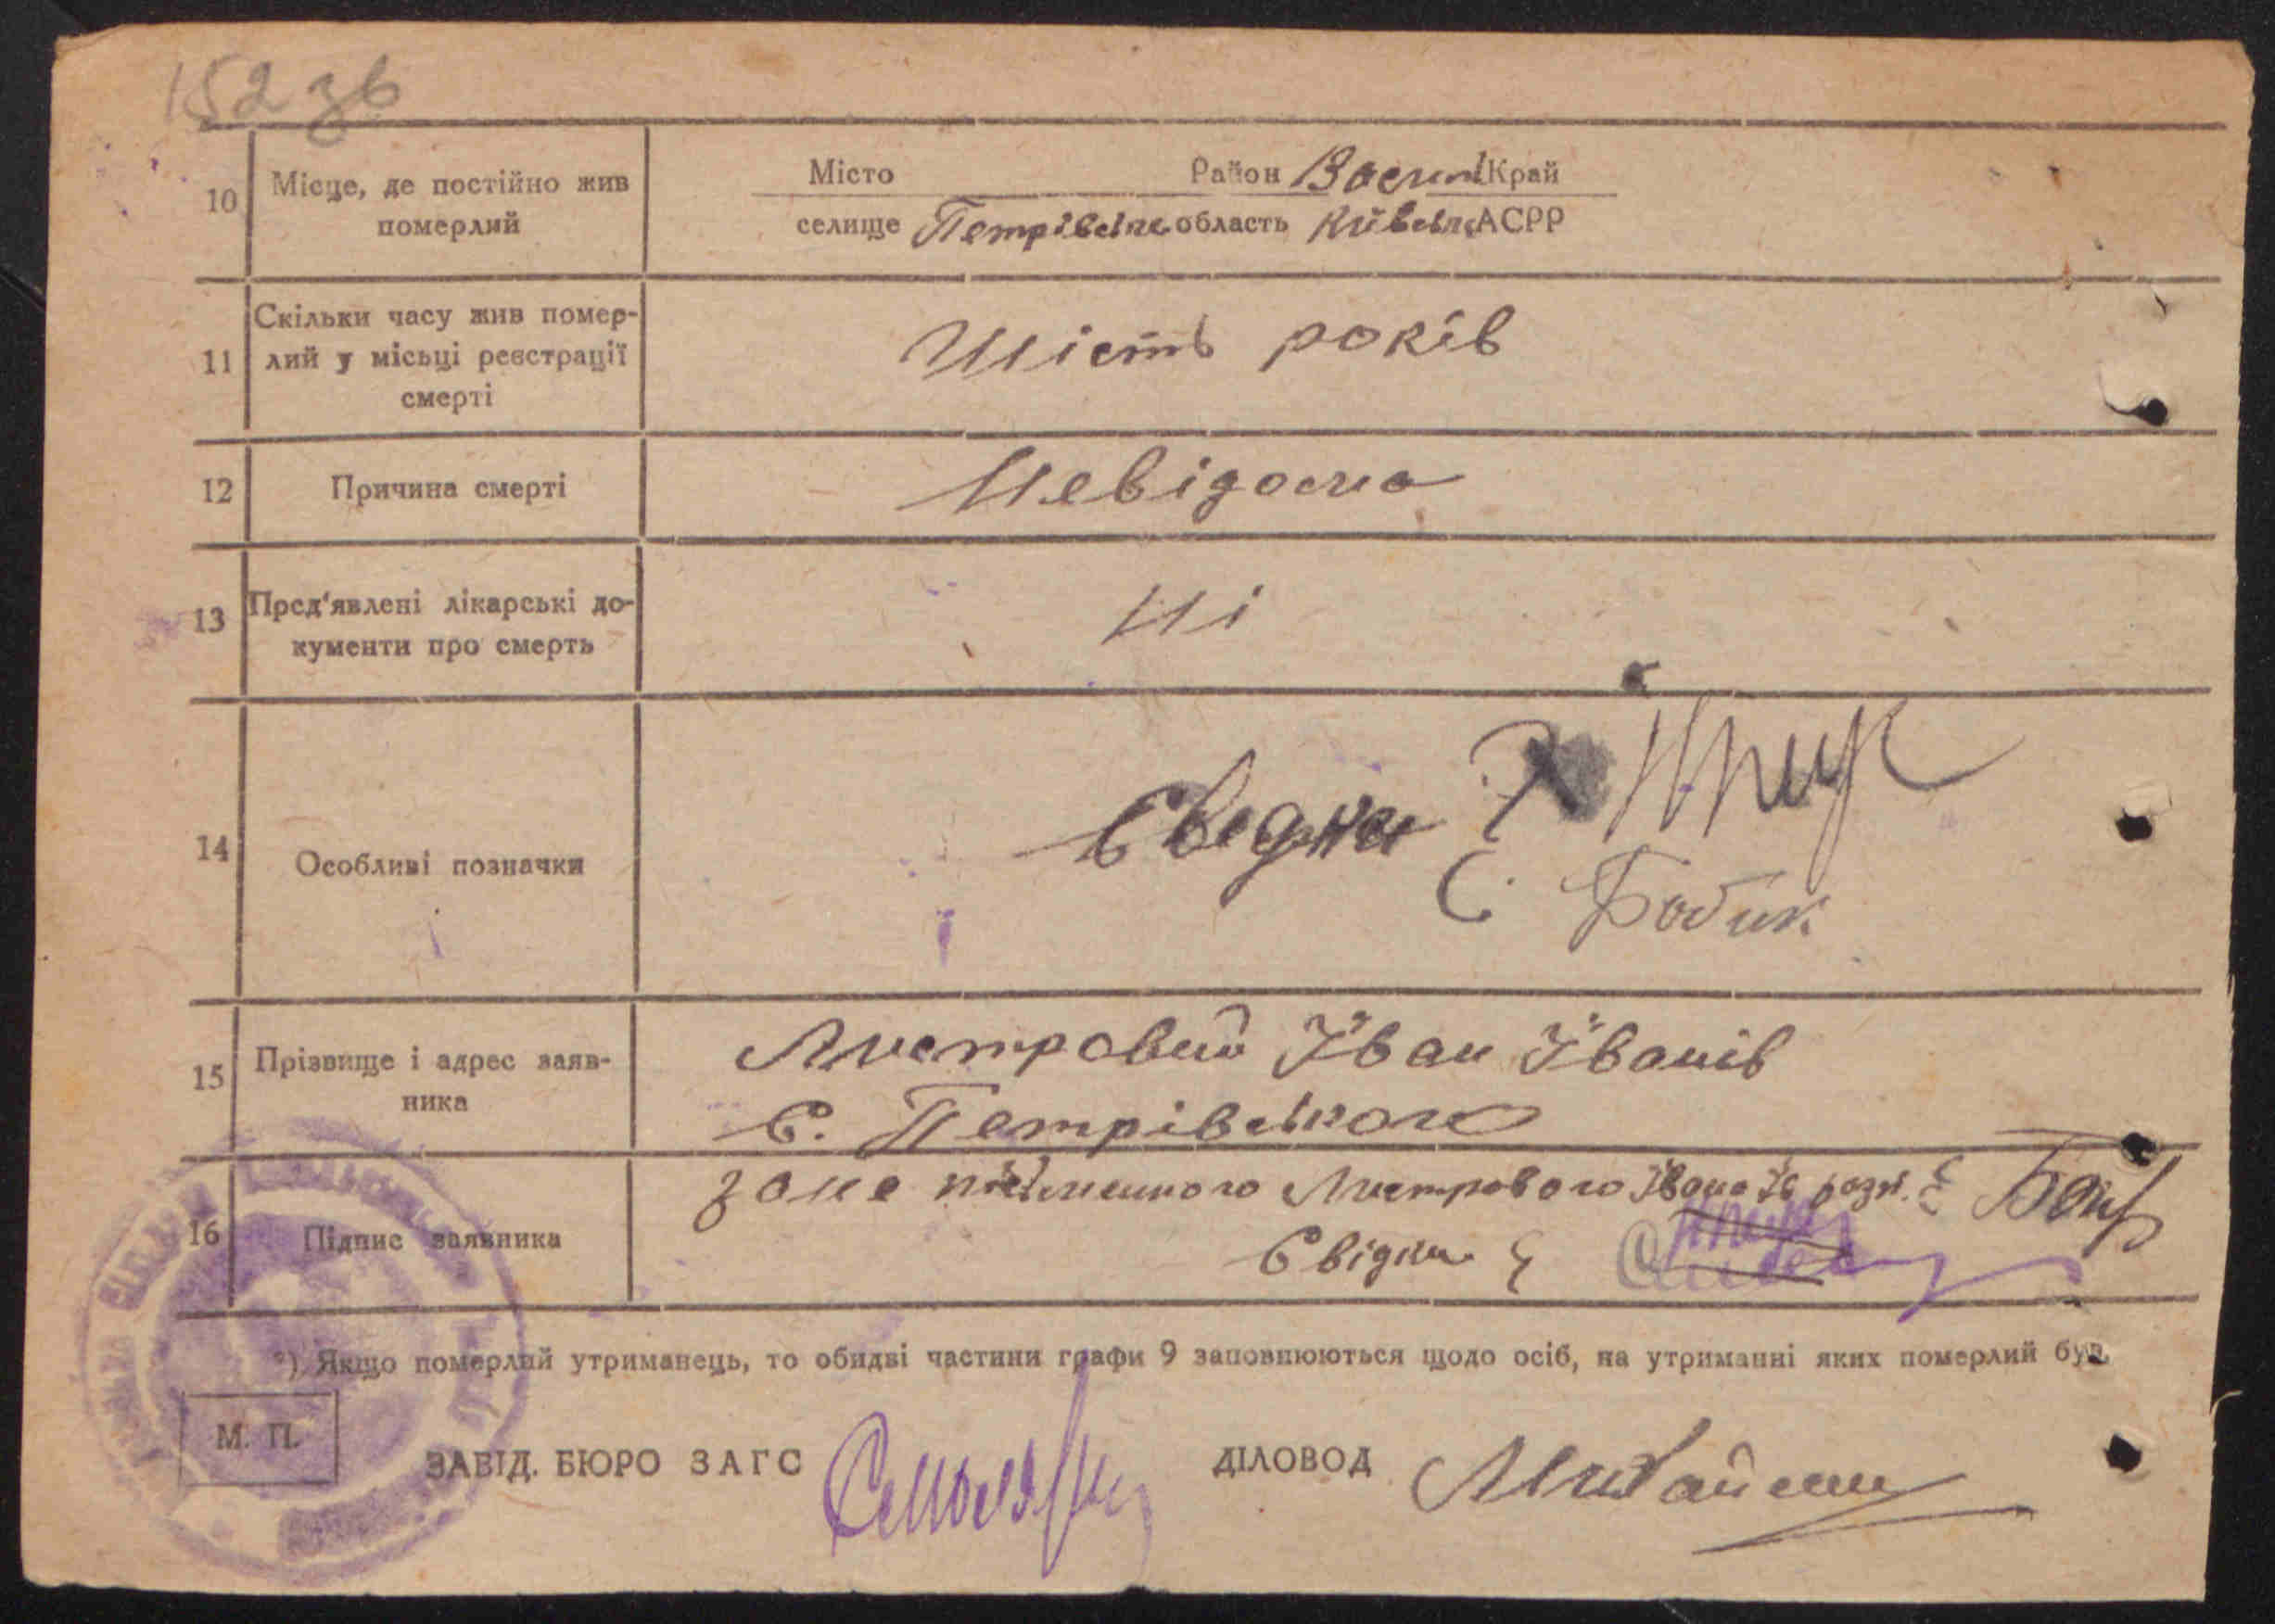 152 зв
10 Місце, де постійно жив померлий
Місто Район Васил Край
селище Петрівське область Київськ АСРР
11 Скільки часу жив помер-
лий у місьці реєстрації
смерті
Шість років
12 Причина смерті
Невідома
13 Пред'явлені лікарські до-
кументи про смерть
Ні
14 Особливі позначки
Свідки
С. Бобик
15 Прізвище і адрес заяв-
ника
Листровий Іван Іванів
С. Петрівського
16 Підпис заявника
за не письменного Листрового Івана Ів розп.
Свідки
*) Якщо померлий утриманець, то обидві частини графи 9 заповнюються щодо осіб, на утриманні яких померлий був.
М. П.
ЗАВІД. БЮРО ЗАГС
ДІЛОВОД